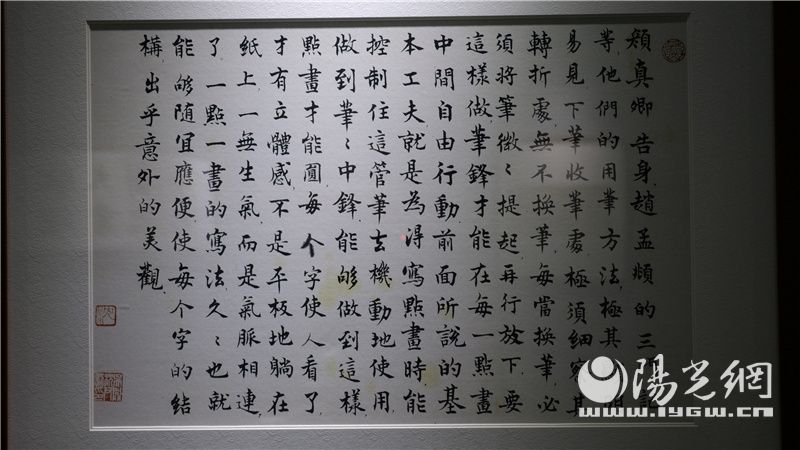 顏真卿告身趙孟頫的三
等他們的用筆方法極其
易見下筆收筆處極須細其
轉折處無不換筆每當換筆必
須將筆微〻提起再行放下要
這樣做筆鋒才能在每一點畫
中間自由行動前面所說的基
本工夫就是為得寫點畫時能
控制住這管筆去機動地使用
做到筆〻中鋒能够做到這樣
點畫才能圓每个字使人看了
才有立體感不是平板地躺在
紙上一無生氣而是氣脈相連
了一點一畫的寫法久〻也就
能够随宜應便使每个字的結
構出乎意外的美觀
陽光網
www.iygw.cn